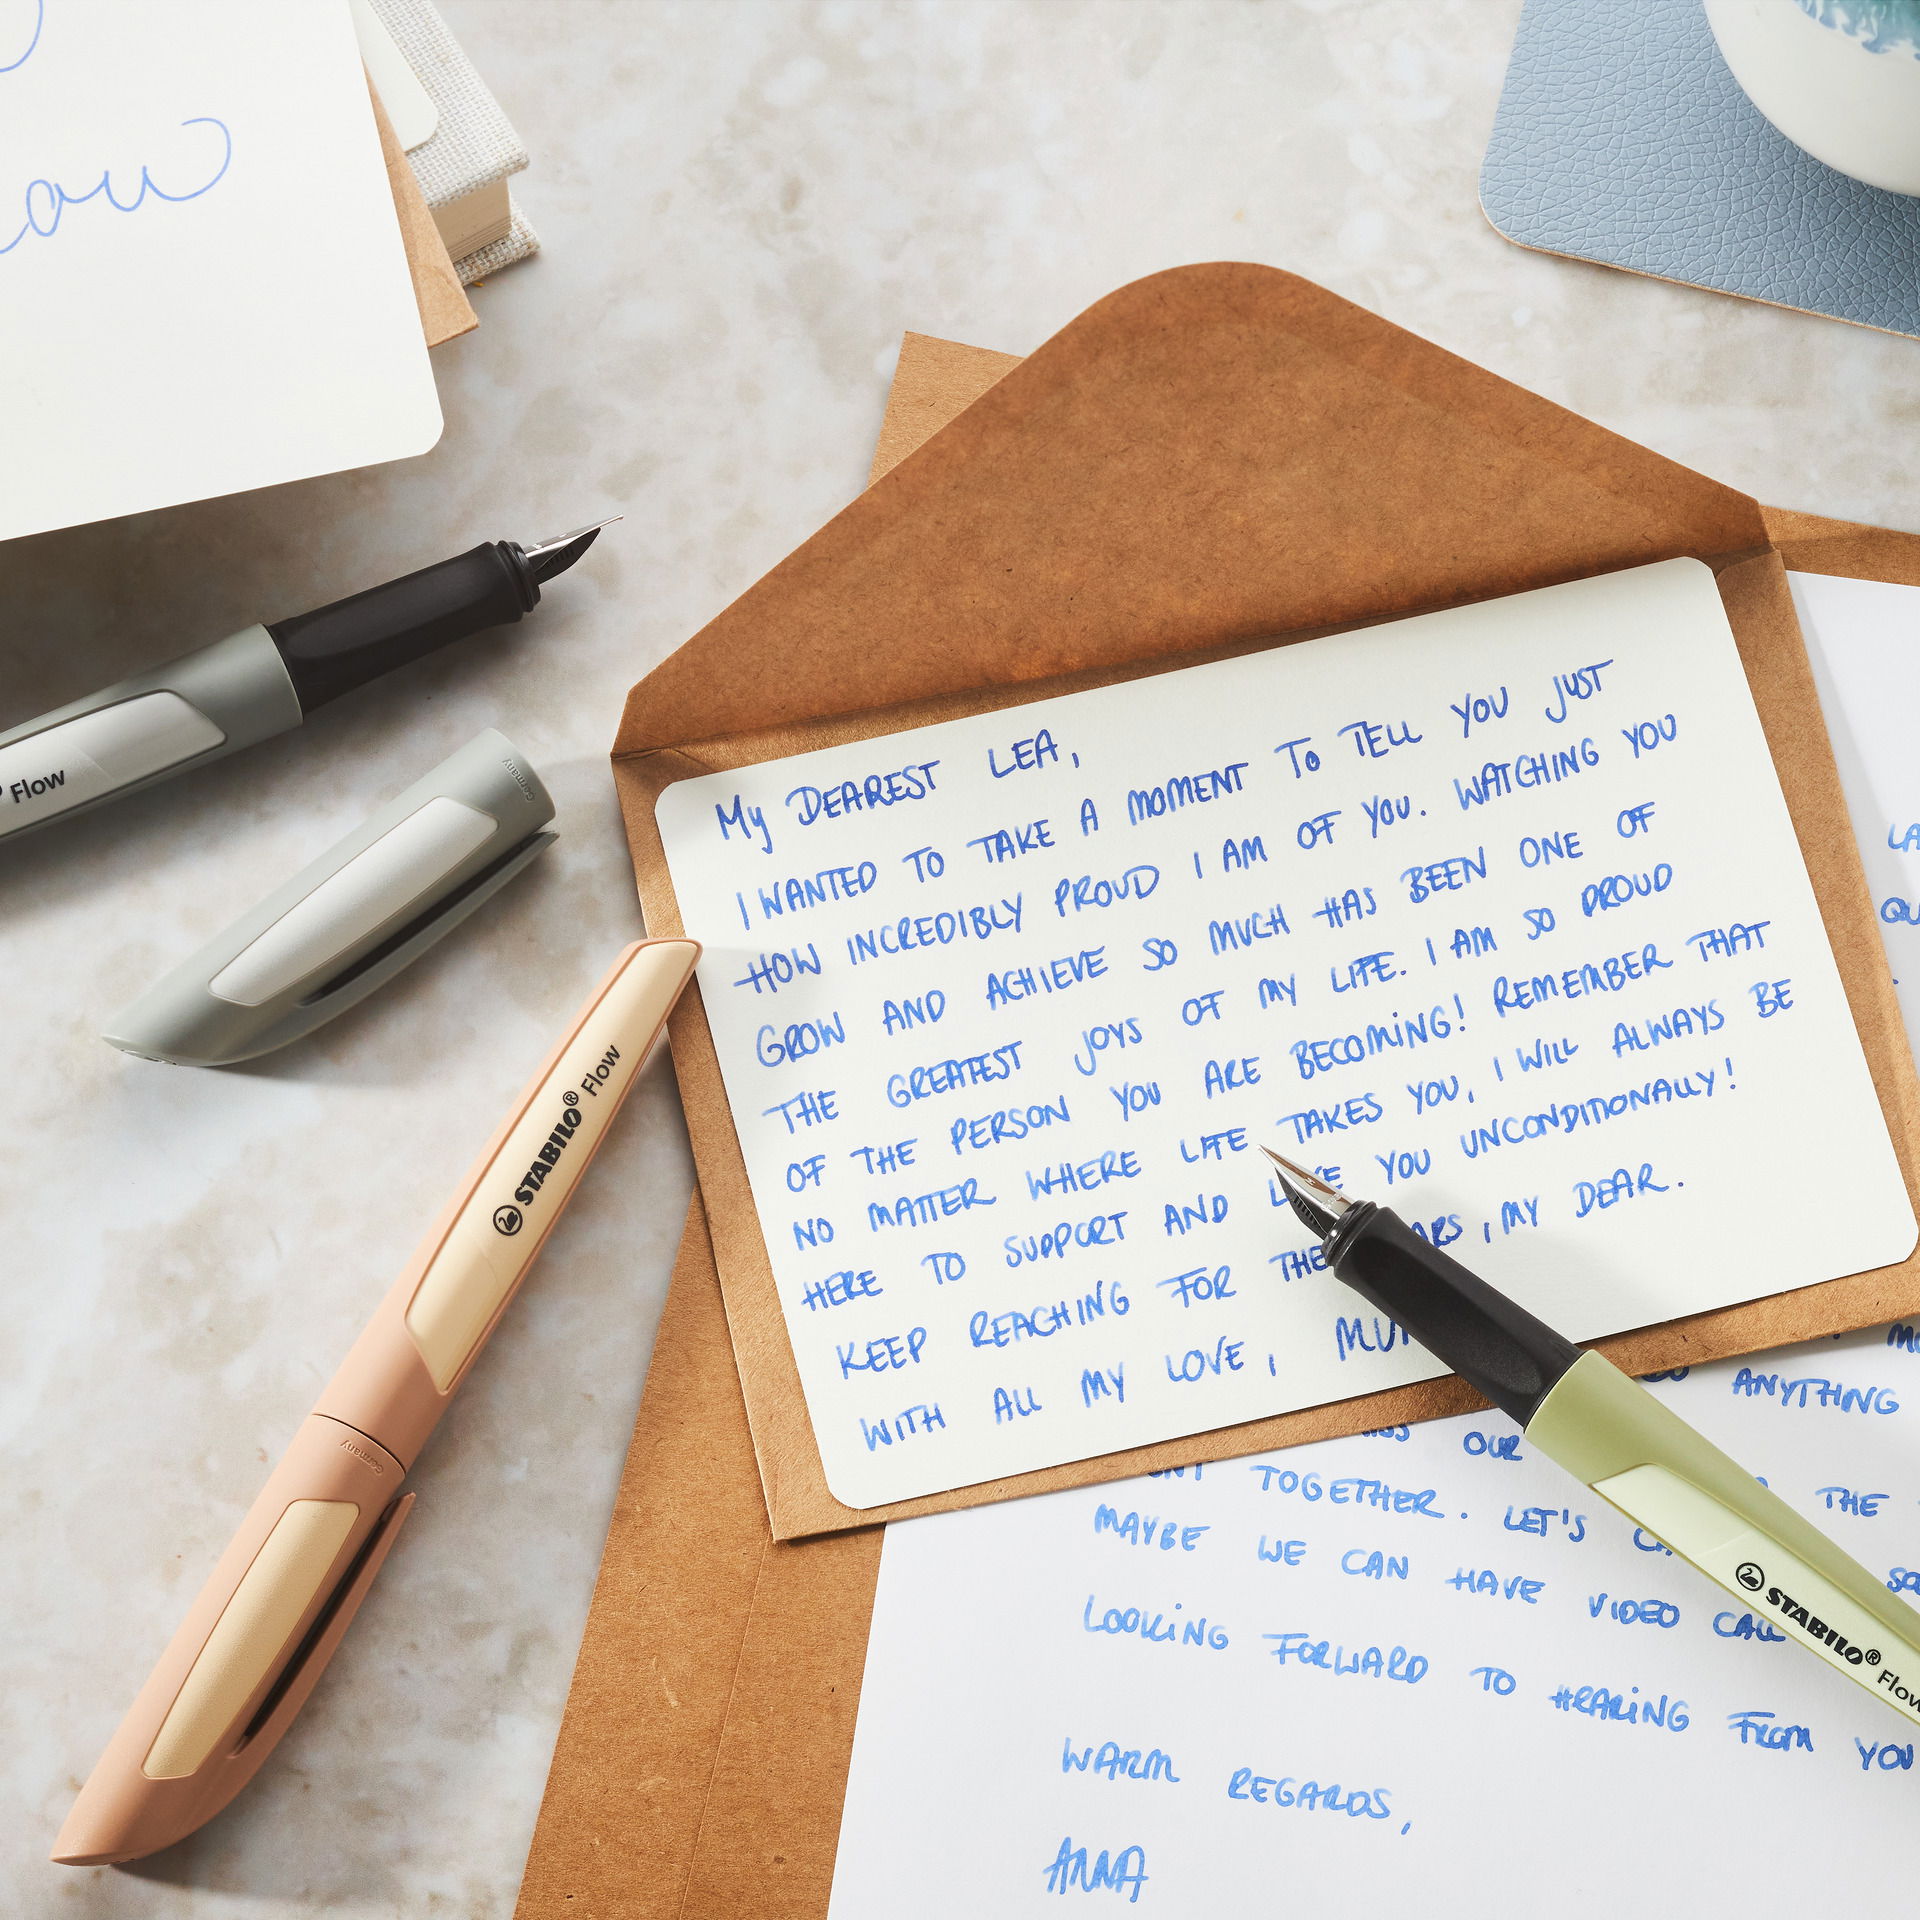 Flow
STABILO® Flow
Germany
Germany
My DEAREST LEA,
I WANTED TO TAKE A MOMENT TO TELL YOU JUST
HOW INCREDIBLY PROUD I AM OF YOU. WATCHING YOU
GROW AND ACHIEVE SO MUCH HAS BEEN ONE OF
THE GREATEST JOYS OF MY LIFE. I AM SO PROUD
OF THE PERSON YOU ARE BECOMING! REMEMBER THAT
NO MATTER WHERE LIFE TAKES YOU, I WILL ALWAYS BE
HERE TO SUPPORT AND YOU UNCONDITIONALLY!
KEEP REACHING FOR THE , MY DEAR.
WITH ALL MY LOVE,
ANYTHING
OUR
TOGETHER. LET'S THE
MAYBE WE CAN HAVE VIDEO CALL
LOOKING FORWARD TO HEARING FROM YOU
WARM REGARDS,
ANNA
STABILO® Flow